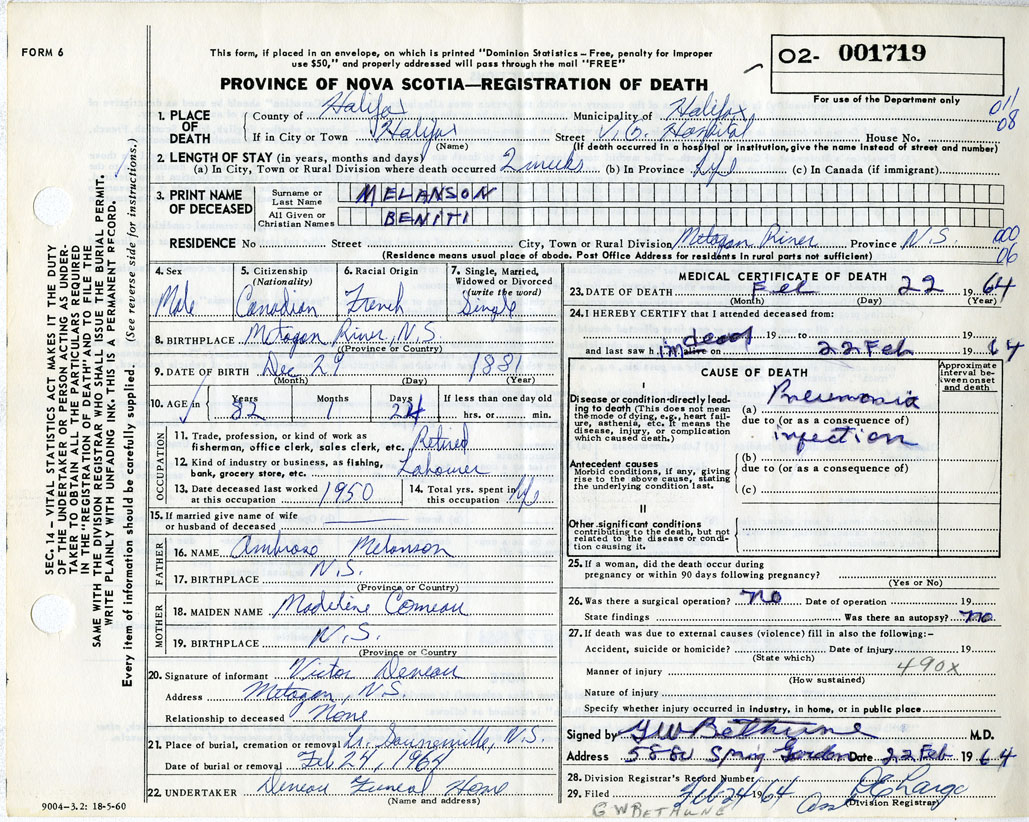 FORM 6
This form, if placed in an envelope, on which is printed "Dominion Statistics – Free, penalty for improper
use $50," and properly addressed will pass through the mail "FREE"
O2- 001719
For use of the Department only
PROVINCE OF NOVA SCOTIA—REGISTRATION OF DEATH
011
08
1. PLACE OF DEATH { County of Halifax Municipality of Halifax
If in City or Town Halifax Street V.G. Hospital House No.
(Name) (If death occurred in a hospital or institution, give the name instead of street and number)
2. LENGTH OF STAY (in years, months and days)
(a) In City, Town or Rural Division where death occurred 2 weeks (b) In Province life (c) In Canada (if immigrant)
3. PRINT NAME OF DECEASED { Surname or Last Name MELANSON
All Given or Christian Names BENITI
RESIDENCE No Street City, Town or Rural Division Metagan River Province N.S.
(Residence means usual place of abode. Post Office Address for residents in rural parts not sufficient)
000
06
4. Sex 5. Citizenship (Nationality) 6. Racial Origin 7. Single, Married, Widowed or Divorced (write the word)
Male Canadian French Single
8. BIRTHPLACE Metagan River, N.S
(Province or Country)
9. DATE OF BIRTH Dec 29 1881
(Month) (Day) (Year)
10. AGE in { Years Months Days If less than one day old
82 1 24 hrs. or min.
OCCUPATION
11. Trade, profession, or kind of work as
fisherman, office clerk, sales clerk, etc. Retired
12. Kind of industry or business, as fishing,
bank, grocery store, etc. Labourer
13. Date deceased last worked
at this occupation 1950
14. Total yrs. spent in
this occupation life
15. If married give name of wife
or husband of deceased
FATHER
16. NAME Ambrose Melanson
17. BIRTHPLACE N.S.
(Province or Country)
MOTHER
18. MAIDEN NAME Madeline Comeau
19. BIRTHPLACE N.S.
(Province or Country)
20. Signature of informant Victor Deneau
Address Metagan, N.S.
Relationship to deceased None
21. Place of burial, cremation or removal N.S.
Date of burial or removal Feb 24, 1964
22. UNDERTAKER Deneau Funeral Home
(Name and address)
9004–3.2: 18-5-60
MEDICAL CERTIFICATE OF DEATH
23. DATE OF DEATH Feb 22 1964
(Month) (Day) (Year)
24. I HEREBY CERTIFY that I attended deceased from:
19 to 19
and last saw him alive on dead 22 Feb 64
CAUSE OF DEATH
Approximate interval between onset and death
I
Disease or condition directly leading to death (This does not mean the mode of dying, e.g., heart failure, asthenia, etc. It means the disease, injury, or complication which caused death.)
(a) Pneumonia
due to (or as a consequence of)
infection
Antecedent causes
Morbid conditions, if any, giving rise to the above cause, stating the underlying condition last.
(b)
due to (or as a consequence of)
(c)
II
Other significant conditions
contributing to the death, but not related to the disease or condition causing it.
25. If a woman, did the death occur during
pregnancy or within 90 days following pregnancy?
(Yes or No)
26. Was there a surgical operation? no Date of operation 19
State findings Was there an autopsy? no
27. If death was due to external causes (violence) fill in also the following:–
Accident, suicide or homicide? Date of injury 19
(State which)
Manner of injury 490X
(How sustained)
Nature of injury
Specify whether injury occurred in industry, in home, or in public place
Signed by GWBethune M.D.
Address 5880 Spring Garden Date 22 Feb 1964
28. Division Registrar's Record Number
29. Filed Feb 24 1964
(Division Registrar)
G W BETHUNE
SEC. 14 – VITAL STATISTICS ACT MAKES IT THE DUTY
OF THE UNDERTAKER OR PERSON ACTING AS UNDER-
TAKER TO OBTAIN ALL THE PARTICULARS REQUIRED
IN THE "REGISTRATION OF DEATH" AND TO FILE THE
SAME WITH THE DIVISION REGISTRAR WHO SHALL ISSUE THE BURIAL PERMIT.
WRITE PLAINLY WITH UNFADING INK. THIS IS A PERMANENT RECORD.
Every item of information should be carefully supplied. (See reverse side for instructions.)